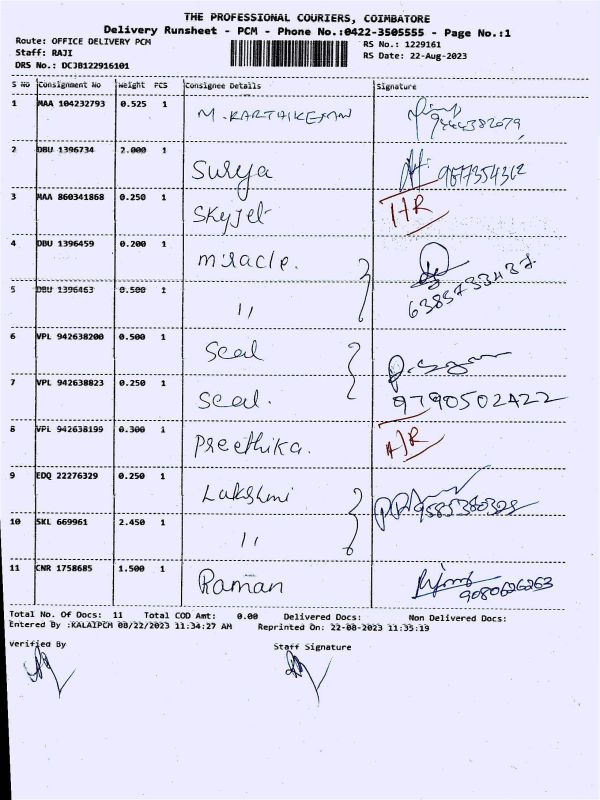 THE PROFESSIONAL COURIERS, COIMBATORE
Delivery Runsheet - PCM - Phone No.:0422-3505555 - Page No.:1
Route: OFFICE DELIVERY PCM
RS No.: 1229161
Staff: RAJI
RS Date: 22-Aug-2023
DRS No.: DCJB122916101
S No Consignment No Weight PCS Consignee Details Signature
1 MAA 104232793 0.525 1 M. KARTHIKEYAN 9444382079
2 DBU 1396734 2.000 1 Surya 9677354362
3 MAA 860341868 0.250 1 Skyjet
4 DBU 1396459 0.200 1 miracle.
5 DBU 1396463 0.500 1 11 6385733437
6 VPL 942638200 0.500 1 Seal
7 VPL 942638823 0.250 1 Seal. 9790502422
8 VPL 942638199 0.300 1 Preethika.
9 EDQ 22276329 0.250 1 Lakshmi 9585380328
10 SKL 669961 2.450 1 11
11 CNR 1758685 1.500 1 Raman 9080626263
Total No. Of Docs: 11 Total COD Amt: 0.00 Delivered Docs: Non Delivered Docs:
Entered By :KALAIPCM 08/22/2023 11:34:27 AM Reprinted On: 22-08-2023 11:35:19
Verified By Staff Signature